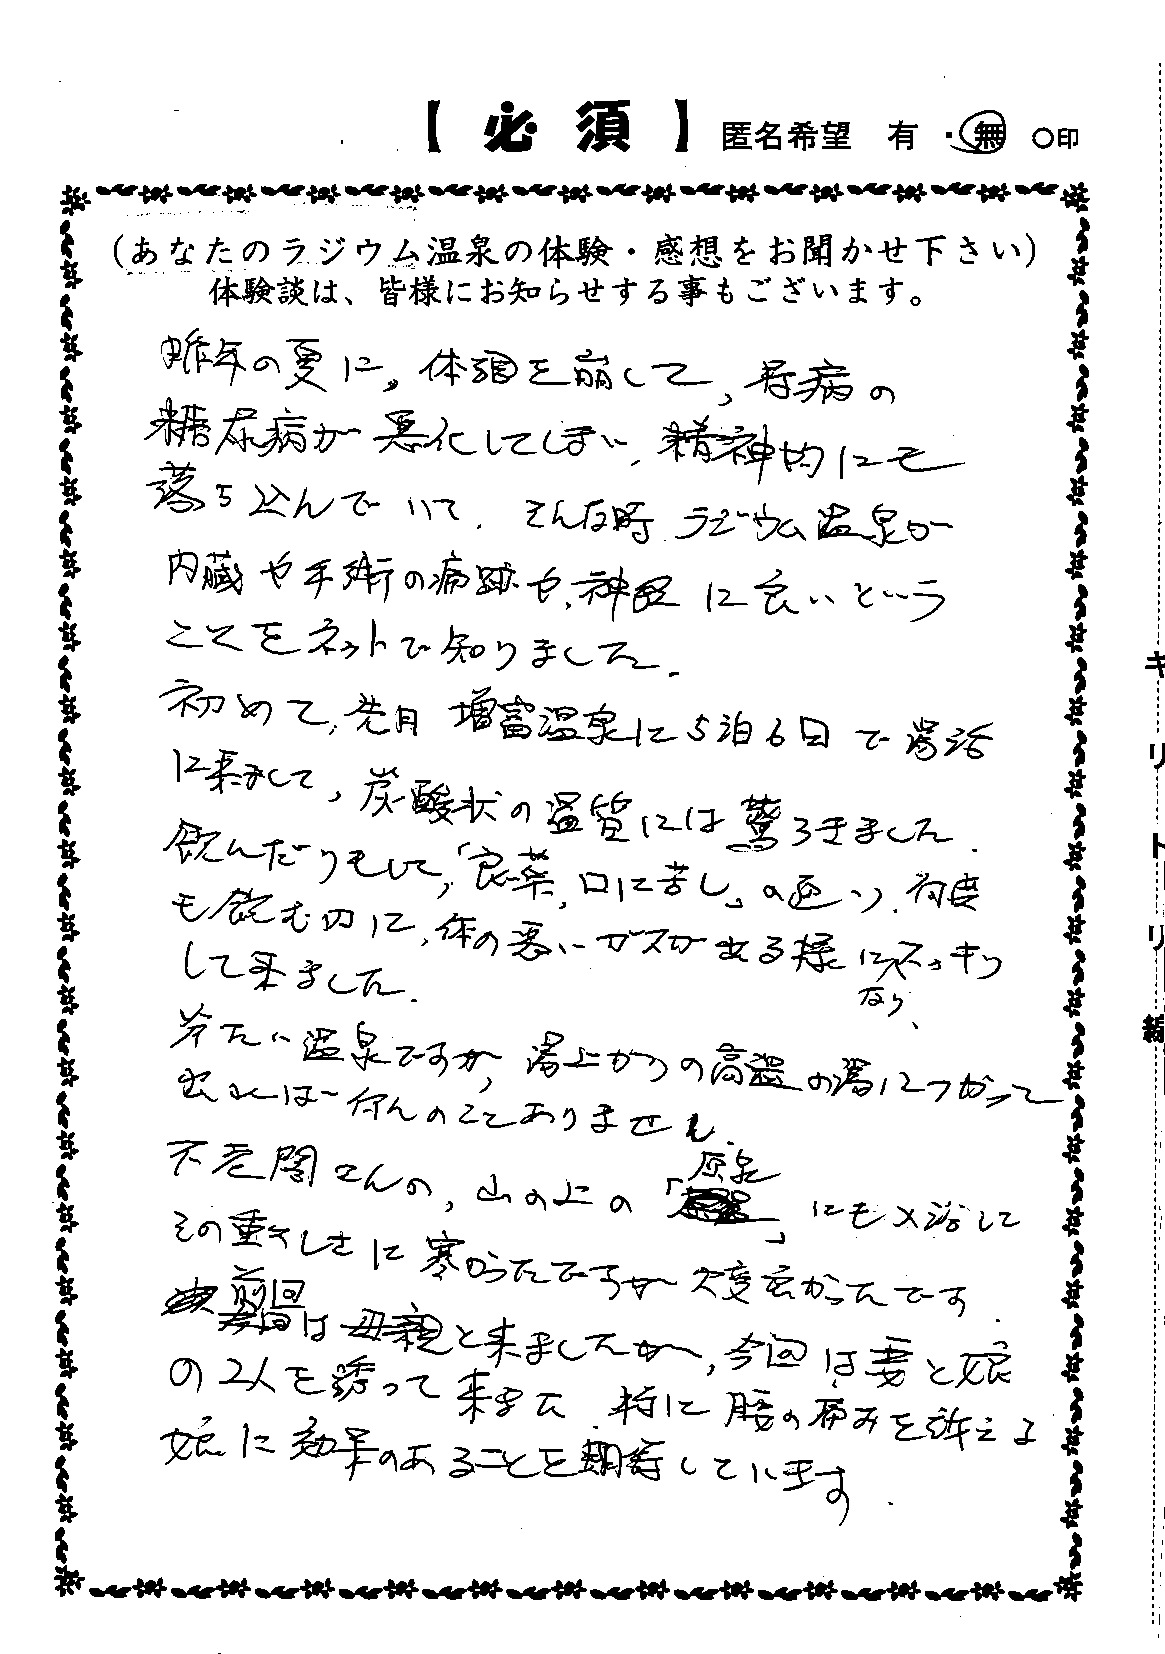 【必須】 匿名希望 有・無 ○印
(あなたのラジウム温泉の体験・感想をお聞かせ下さい)
体験談は、皆様にお知らせする事もございます。
昨年の夏に、体調を崩して、持病の
糖尿病が悪化してしまい、精神的にも
落ち込んでいて、そんな時ラジウム温泉が
内臓や手術の痛跡や、神経に良いという
ことをネットで知りました。
初めて、先月 増富温泉に5泊6日で湯治
に来まして、炭酸状の温質には驚ろきました。
飲んだりもして、「良薬、口に苦し」の通り、何度
も飲む内に、体の悪いガスが出る様にスッキリ
なり、
して来ました。
冷たい温泉ですが、湯上がりの高温の湯につかって
出れば何んのことありません。
不老閣さんの、山の上の「原泉」にも入浴して
その重々しさに寒かったですが大変良かったです。
前回は母親と来ましたが、今回は妻と娘
の2人を誘って来ました。特に腰の痛みを訴える
娘に効果のあることを期待しています。
キリトリ線